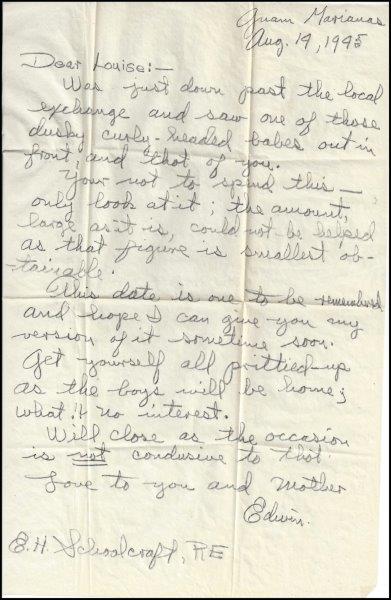 Guam Marianas
Aug. 14, 1945
Dear Louise:—
Was just down past the local
exchange and saw one of those
dusky curly-headed babes out in
front, and thot of you.
Your not to spend this —
only look at it; the amount,
large as it is, could not be helped
as that figure is smallest ob-
tainable.
This date is one to be remembered
and hope I can give you my
version of it sometime soon.
Get yourself all prittied-up
as the boys will be home;
what! no interest.
Will close as the occasion
is not condusive to thot.
Love to you and Mother
Edwin.
E. H. Schoolcraft, RE